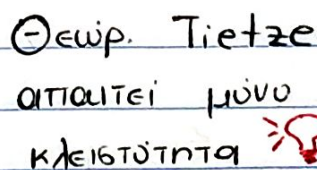 Θεώρ. Tietze
απαιτεί μόνο
κλειστότητα